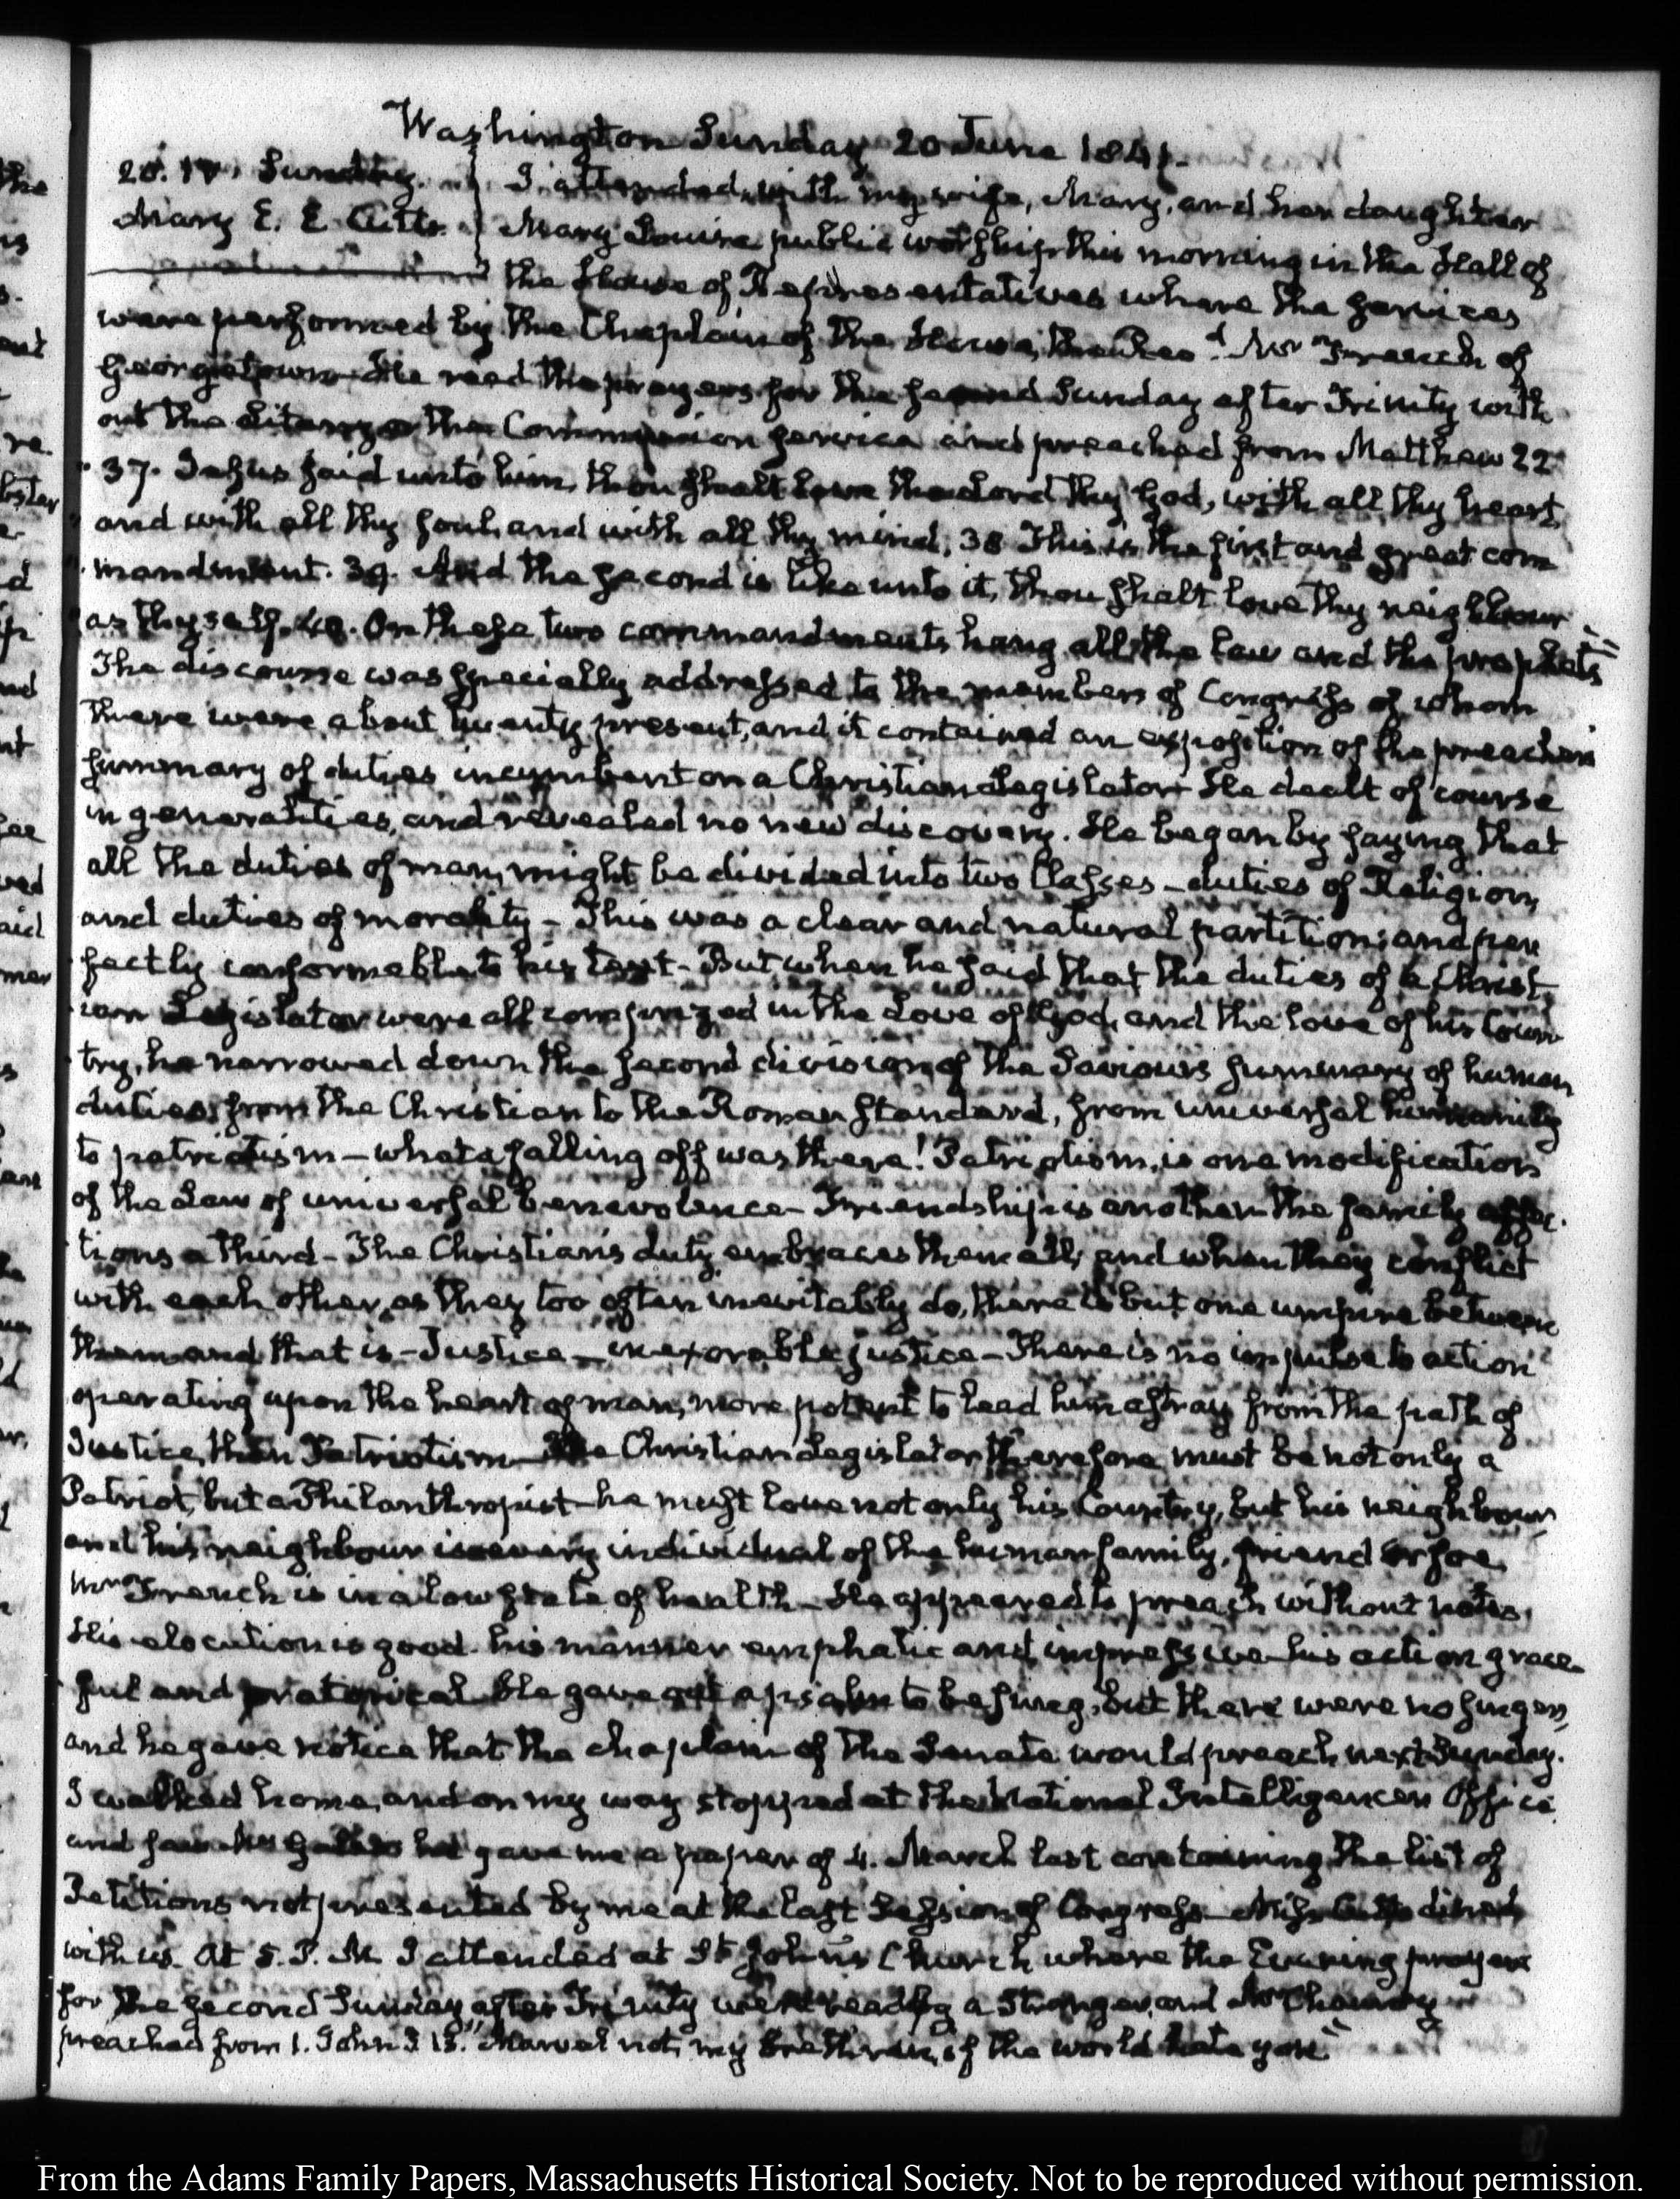 Washington Sunday 20 June 1841.
20. IV. Sunday.
Mary E. E. Cutts.
I attended with my wife, Mary, and her daughter
Mary Louisa public worship this morning in the Hall of
the House of Representatives where the services
were performed by the Chaplain of the House, the Revd. Mr French of
Georgetown. He read the prayers for the second Sunday after Trinity with
out the Litany or the Communion service and preached from Matthew 22
37. Jesus said unto him, thou shalt love the Lord thy God, with all thy heart
and with all thy soul, and with all thy mind, 38 This is the first and great com
mandment. 39. And the second is like unto it, thou shalt love thy neighbour
as thyself. 40. On these two commandments hang all the law and the prophets"
The discourse was specially addressed to the members of Congress of whom
there were about twenty present, and it contained an exposition of the preacher's
summary of duties incumbent on a Christian Legislator. He dealt of course
in generalities, and revealed no new discovery. He began by saying that
all the duties of man, might be divided into two Classes – duties of Religion,
and duties of morality – This was a clear and natural partition; and per
fectly conformable to his text – But when he said that the duties of a Christ
ian Legislator were all comprized in the Love of God, and the love of his Coun
try, he narrowed down the second division of the Saviour's summary of human
duties, from the Christian to the Roman standard, from universal humanity
to patriotism – what a falling off was there! Patriotism, is one modification
of the Law of universal benevolence – Friendship is another – the family affec
tions a third – The Christian's duty embraces them all, and when they conflict
with each other, as they too often inevitably do, there is but one umpire between
them and that is – Justice – inexorable justice – There is no impulse to action
operating upon the heart of man, more potent to lead him astray from the path of
Justice, than Patriotism – The Christian Legislator therefore must be not only a
Patriot, but a Philanthropist – he must love not only his Country, but his neighbour
and his neighbour is every individual of the human family, friend or foe.
Mr French is in a low state of health – He appeared to preach without notes.
His elocution is good – his manner emphatic and impressive – his action grace
ful and oratorical. He gave out a psalm to be sung, but there were no singers,
and he gave notice that the chaplain of the Senate would preach next Sunday.
I walked home, and on my way stopped at the National Intelligencer Office
and saw Mr Gales he gave me a paper of 4. March last containing the list of
Petitions not presented by me at the last Session of Congress – Miss Cutts dined
with us. At 5. P. M. I attended at St. John's Church where the Evening prayers
for the second Sunday after Trinity were read by a Stranger, and Mr
preached from 1. John 3 13. "Marvel not, my brethren, if the world hate you"
From the Adams Family Papers, Massachusetts Historical Society. Not to be reproduced without permission.